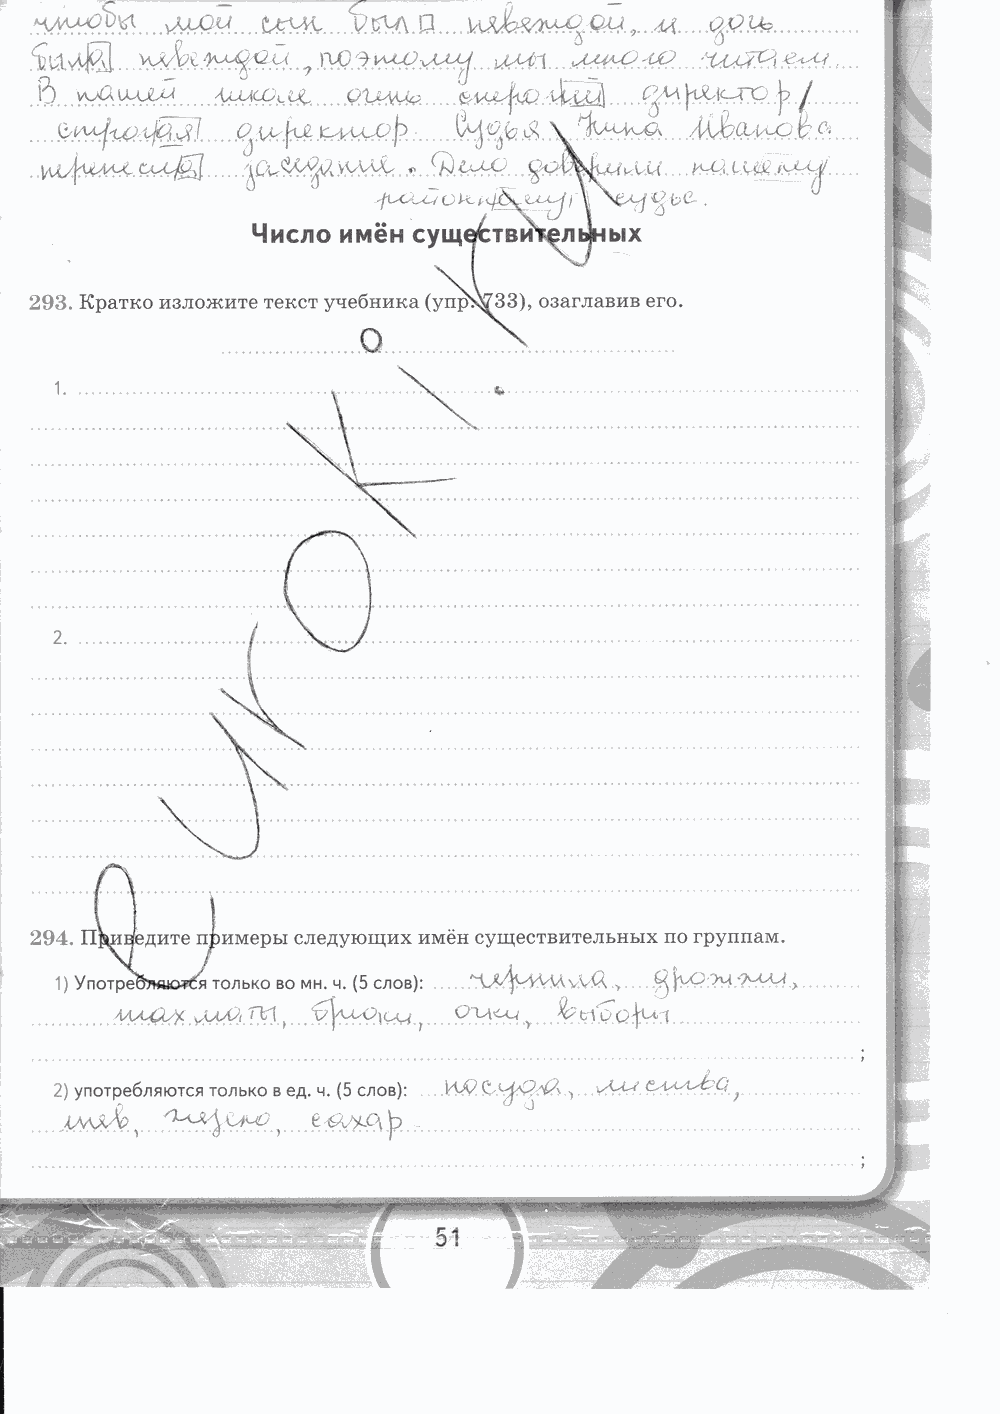 чтобы мой сын был невеждой, и дочь
была невеждой, поэтому мы много читаем.
В нашей школе очень строгий директор /
строгая директор. Судья Нина Иванова
перенесла заседание. Дело доверили нашему
районному судье.
Число имён существительных
293. Кратко изложите текст учебника (упр. 733), озаглавив его.
1.
2.
eurokі.ru
294. Приведите примеры следующих имён существительных по группам.
1) Употребляются только во мн. ч. (5 слов): чернила, дрожжи,
шахматы, брюки, очки, выборы
;
2) употребляются только в ед. ч. (5 слов): посуда, листва,
хлев, сахар
;
51